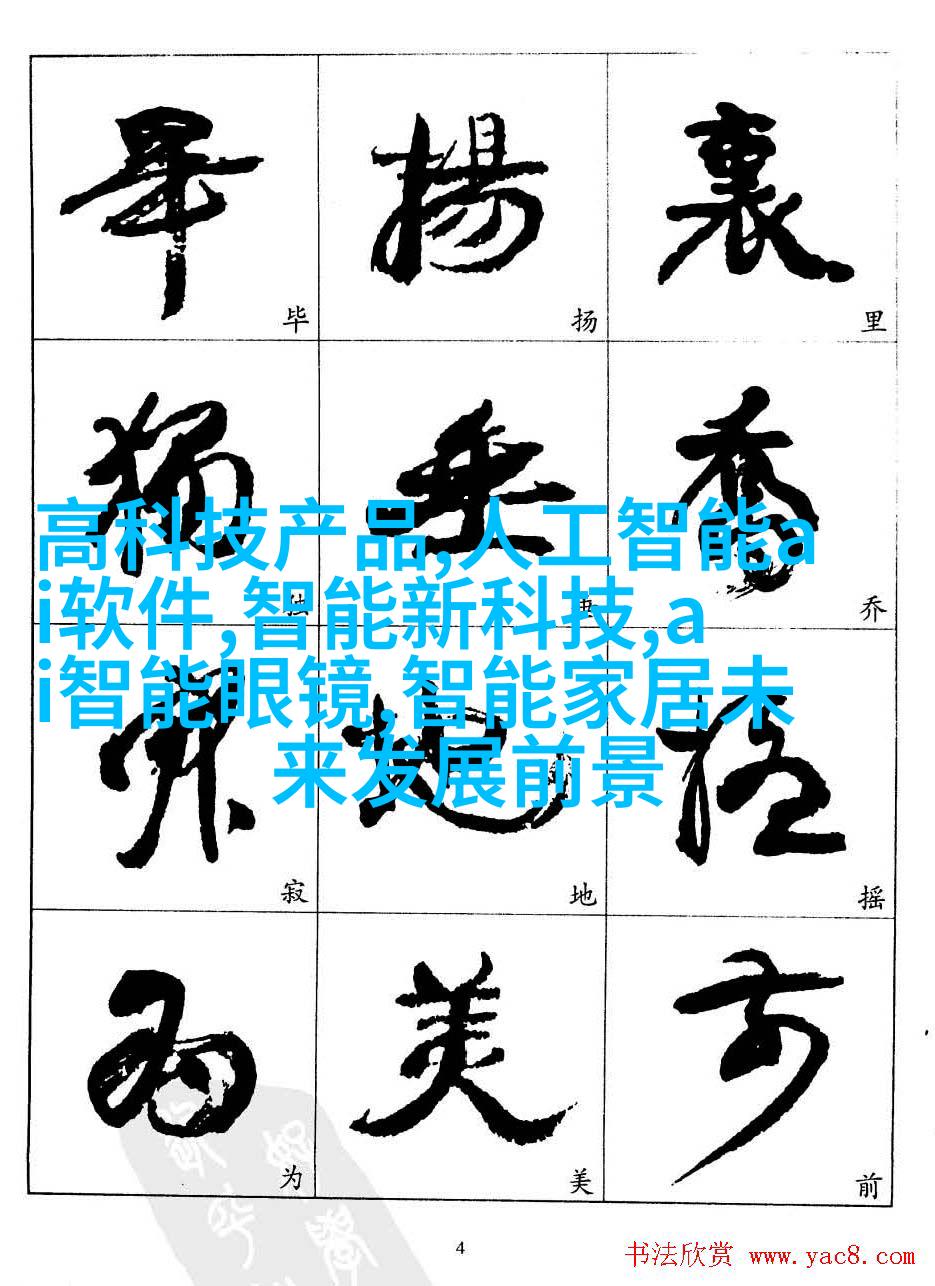 畢 揚 裏
毕 扬 里
獨 垂 喬
独 乔
高科技产品,人工智能a
i软件,智能新科技,a
i智能眼镜,智能家居未
来发展前景
寂 地 摇
寂 地 摇
为 美 前
为 美 前
4
书法欣赏 www.yac8.com